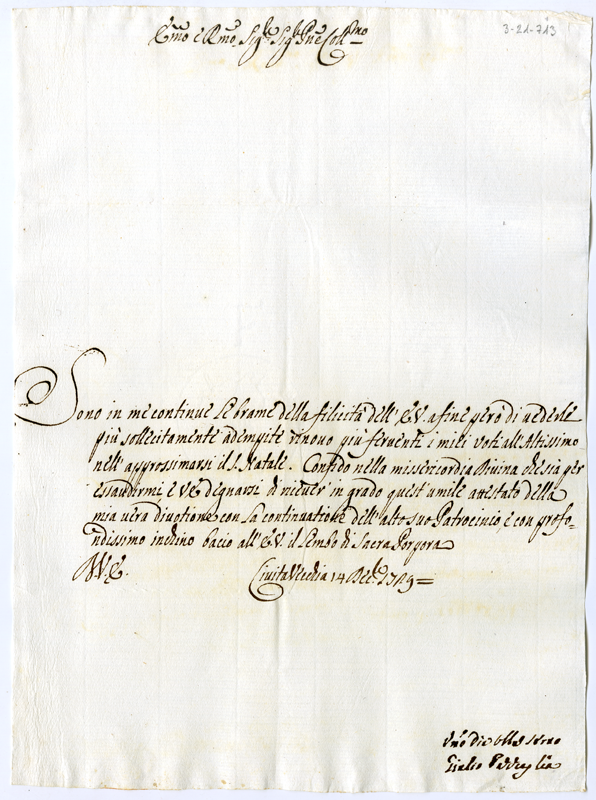 3-21-713
Emo e Rmo Sigre Sigre Pne Collmo
Sono in me continue le brame della filicità dell' E.V. a fine però di uederle
più sollecitamente adempite rinouo più feruenti i miei voti all'Altissimo
nell' approssimarsi il S. Natale. Confido nella misericordia Diuina che sia per
essaudirmi, e V.E. degnarsi di riceuer in grado quest'umile attestato della
mia vera divotione con la continuatione dell'alto suo Patrocinio, e con profo-
ndissimo inchino bacio all'E.V. il Lembo di Sacra Porpora
D.V.E.
Ciuita Vecchia 14 Dec.e 1709=
Vmo Die Obbl Seruo
Giulio